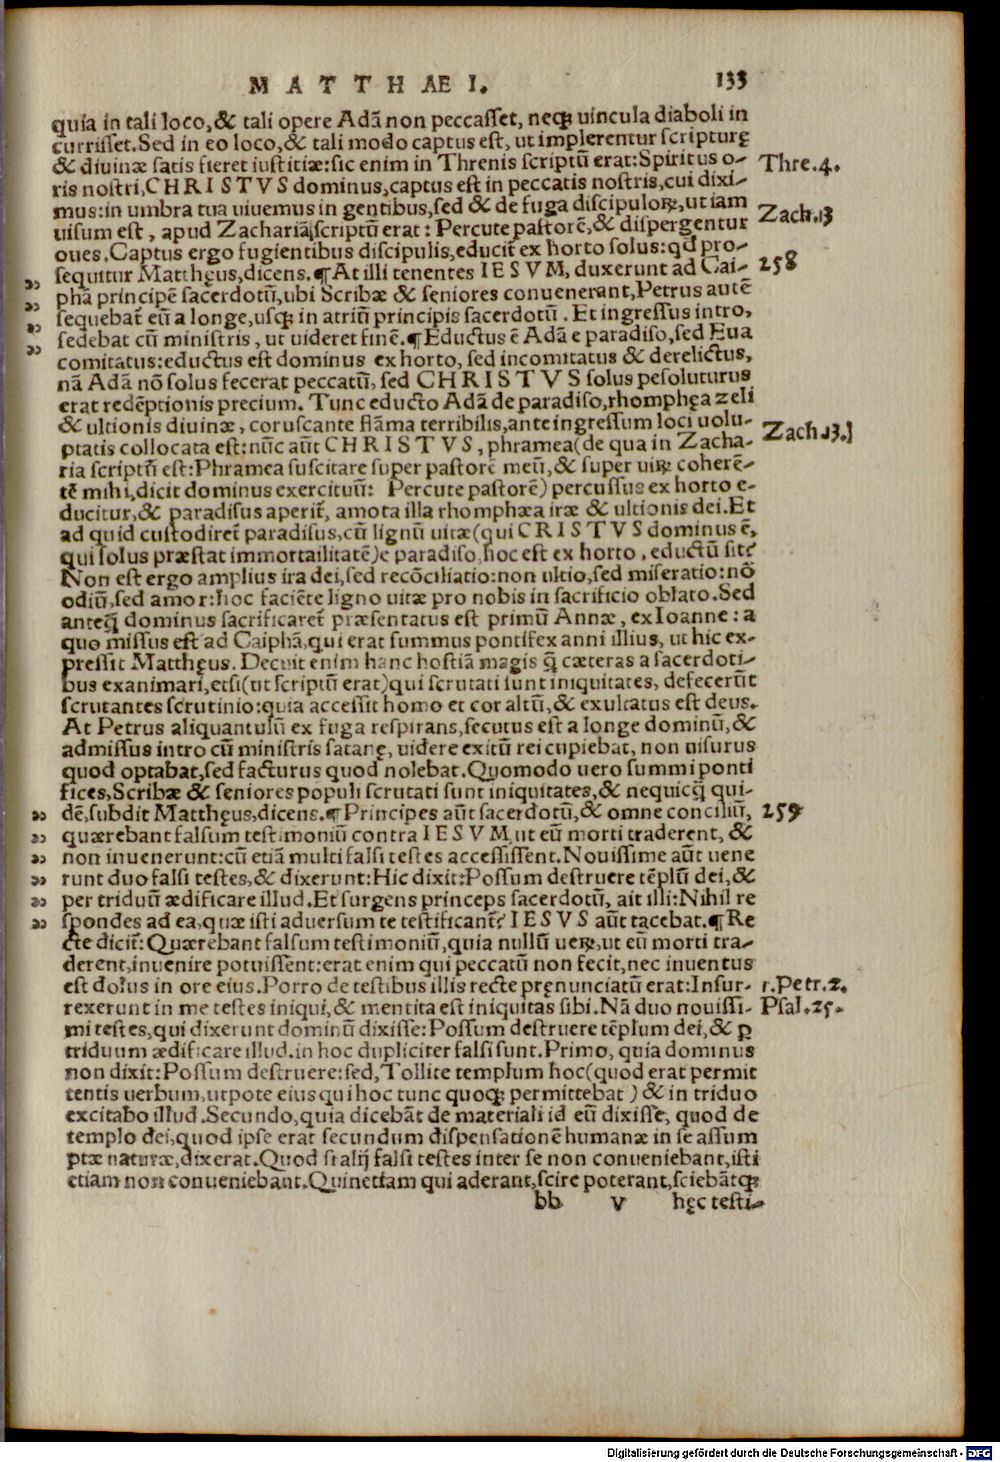 MATTHAEI. 133
quia in tali loco,& tali opere Adã non peccasset, neqꝫ uincula diaboli in
currisset.Sed in eo loco,& tali modo captus est, ut implerentur scripturę
& diuinæ satis fieret iustitiæ:sic enim in Threnis scriptũ erat:Spiritus o- Thre.4.
ris nostri,CHRISTVS dominus,captus est in peccatis nostris,cui dixi-
mus:in umbra tua uiuemus in gentibus,sed & de fuga discipuloꝝ,ut iam
uisum est, apud Zachariã,scriptũ erat: Percute pastorẽ,& dispergentur Zach.13
oues.Captus ergo fugientibus discipulis,educit̃ ex horto solus:qđ pro-
sequitur Matthęus,dicens.¶At illi tenentes IESVM, duxerunt ad Cai- 258
phã principẽ sacerdotũ,ubi Scribæ & seniores conuenerant,Petrus autẽ
sequebat̃ eũ a longe,usqꝫ in atriũ principis sacerdotũ. Et ingressus intro,
sedebat cũ ministris, ut uideret finẽ.¶Eductus ẽ Adã e paradiso,sed Eua
comitatus:eductus est dominus ex horto, sed incomitatus & derelictus,
nã Adã nõ solus fecerat peccatũ, sed CHRISTVS solus pesoluturus
erat redẽptionis precium. Tunc educto Adã de paradiso,rhomphęa zeli
& ultionis diuinæ, coruscante flãma terribilis,ante ingressum loci uolu-
ptatis collocata est:nũc aũt CHRISTVS, phramea(de qua in Zacha- Zach.13.
ria scriptũ est:Phramea suscitare super pastorẽ meũ,& super uiꝝ coherẽ-
tẽ mihi,dicit dominus exercituũ: Percute pastorẽ) percussus ex horto e-
ducitur,& paradisus aperit̃, amota illa rhomphæa iræ & ultionis dei.Et
ad quid custodiret̃ paradisus,cũ lignũ uitæ(qui CRISTVS dominus ẽ,
qui solus præstat immortailitatẽ)e paradiso,hoc est ex horto, eductũ sit?
Non est ergo amplius ira dei,sed recõciliatio:non ultio,sed miseratio:nõ
odiũ,sed amor:hoc faciẽte ligno uitæ pro nobis in sacrificio oblato.Sed
anteq̃ dominus sacrificaret̃ præsentatus est primũ Annæ, ex Ioanne: a
quo missus est ad Caiphã,qui erat summus pontifex anni illius, ut hic ex-
pressit Matthęus. Decuit enim hanc hostiã magis q̃ cæteras a sacerdoti-
bus exanimari,etsi(ut scriptũ erat)qui scrutati sunt iniquitates, defecerũt
scrutantes scrutinio:quia accessit homo et cor altũ,& exultatus est deus.
At Petrus aliquantulũ ex fuga respirans,secutus est a longe dominũ,&
admissus intro cũ ministris satanę, uidere exitũ rei cupiebat, non uisurus
quod optabat,sed facturus quod nolebat.Quomodo uero summi ponti
fices,Scribæ & seniores populi scrutati sunt iniquitates,& nequicq̃ qui-
dẽ,subdit Matthęus,dicens.¶Principes aũt sacerdotũ,& omne conciliũ, 259
quærebant falsum testimoniũ contra IESVM,ut eũ morti traderent, &
non inuenerunt:cũ etiã multi falsi testes accessissent.Nouissime aũt uene
runt duo falsi testes,& dixerunt:Hic dixit:Possum destruere tẽplũ dei,&
per triduũ ædificare illud.Et surgens princeps sacerdotũ, ait illi:Nihil re
spondes ad ea,quæ isti aduersum te testificant̃? IESVS aũt tacebat.¶Re
cte dicit̃:Quærebant falsum testimoniũ,quia nullũ ueꝝ,ut eũ morti tra-
derent,inuenire potuissent:erat enim qui peccatũ non fecit,nec inuentus
est dolus in ore eius.Porro de testibus illis recte pręnunciatũ erat:Insur- 1.Petr.2.
rexerunt in me testes iniqui,& mentita est iniquitas sibi.Nã duo nouissi- Psal.25.
mi testes,qui dixerunt dominũ dixisse:Possum destruere tẽplum dei,& ꝑ
triduum ædificare illud.in hoc dupliciter falsi sunt.Primo, quia dominus
non dixit:Possum destruere:sed,Tollite templum hoc(quod erat permit
tentis uerbum,utpote eius qui hoc tunc quoqꝫ permittebat) & in triduo
excitabo illud.Secundo,quia dicebãt de materiali id eũ dixisse, quod de
templo dei,quod ipse erat secundum dispensationẽ humanæ in se assum
ptæ naturæ,dixerat.Quod si alij falsi testes inter se non conueniebant,isti
etiam non conueniebant.Quinetiam qui aderant,scire poterant,sciebãtqꝫ
bb v hęc testi-
Digitalisierung gefördert durch die Deutsche Forschungsgemeinschaft - DFG